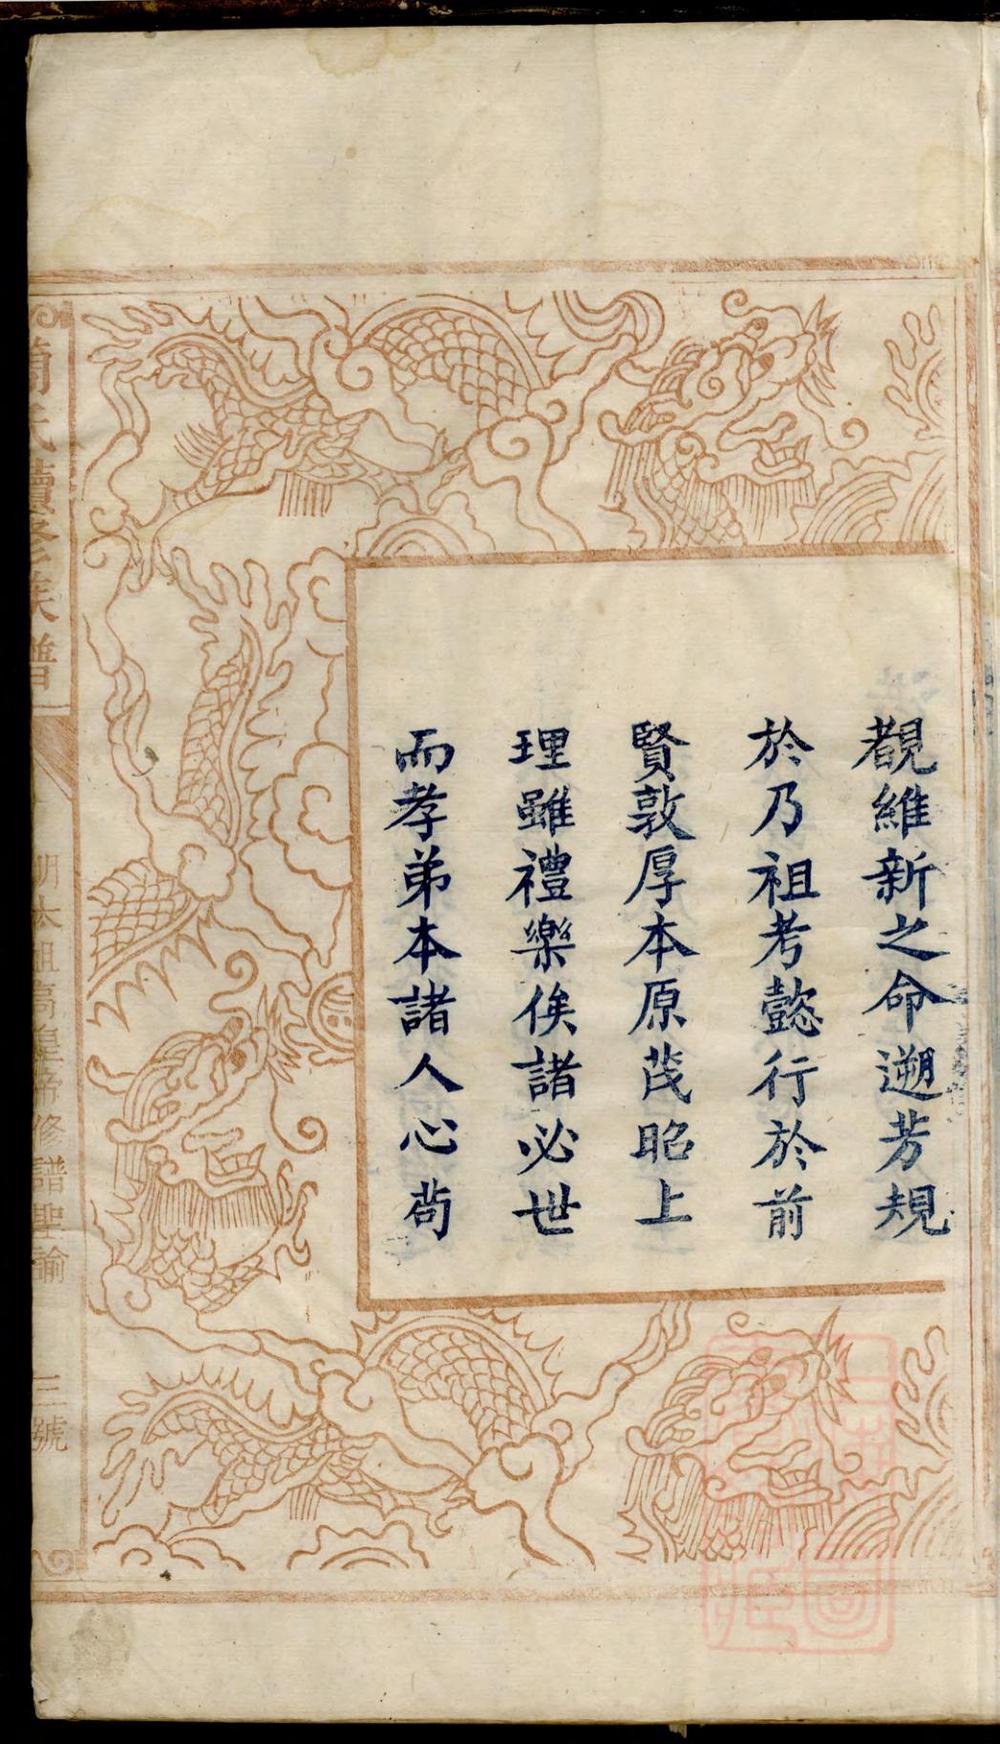 覩維新之命遡芳規
於乃祖考懿行於前
賢敦厚本原茂昭上
理雖禮樂俟諸必世
而孝弟本諸人心苟
氏續修族譜
明太祖高皇帝修譜聖諭
三號